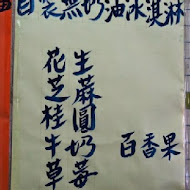 自製無奶油冰淇淋
花生
芝蔴
桂圓
牛奶
百香果
草莓